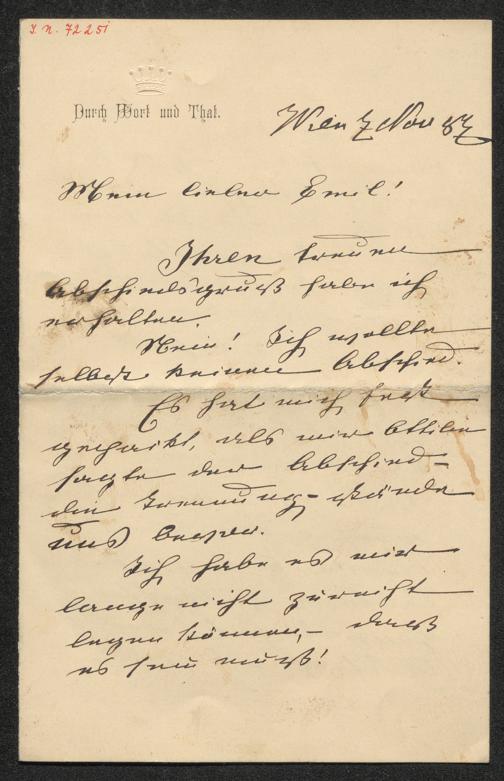 J. N. 72251
Durch Wort und That.
Wien 7 Nov 87
Mein lieber Emil!
Ihren treuen
Abschiedsgruß habe ich
erhalten.
Nein! Ich wollte
selbst keinen Abschied.
Es hat mich fest
gepackt, als mir Ottilie
sagte der Abschied –
die Trennung – stände
uns bevor.
Ich habe es mir
lange nicht zurecht
legen können, – daß
es sein muß!